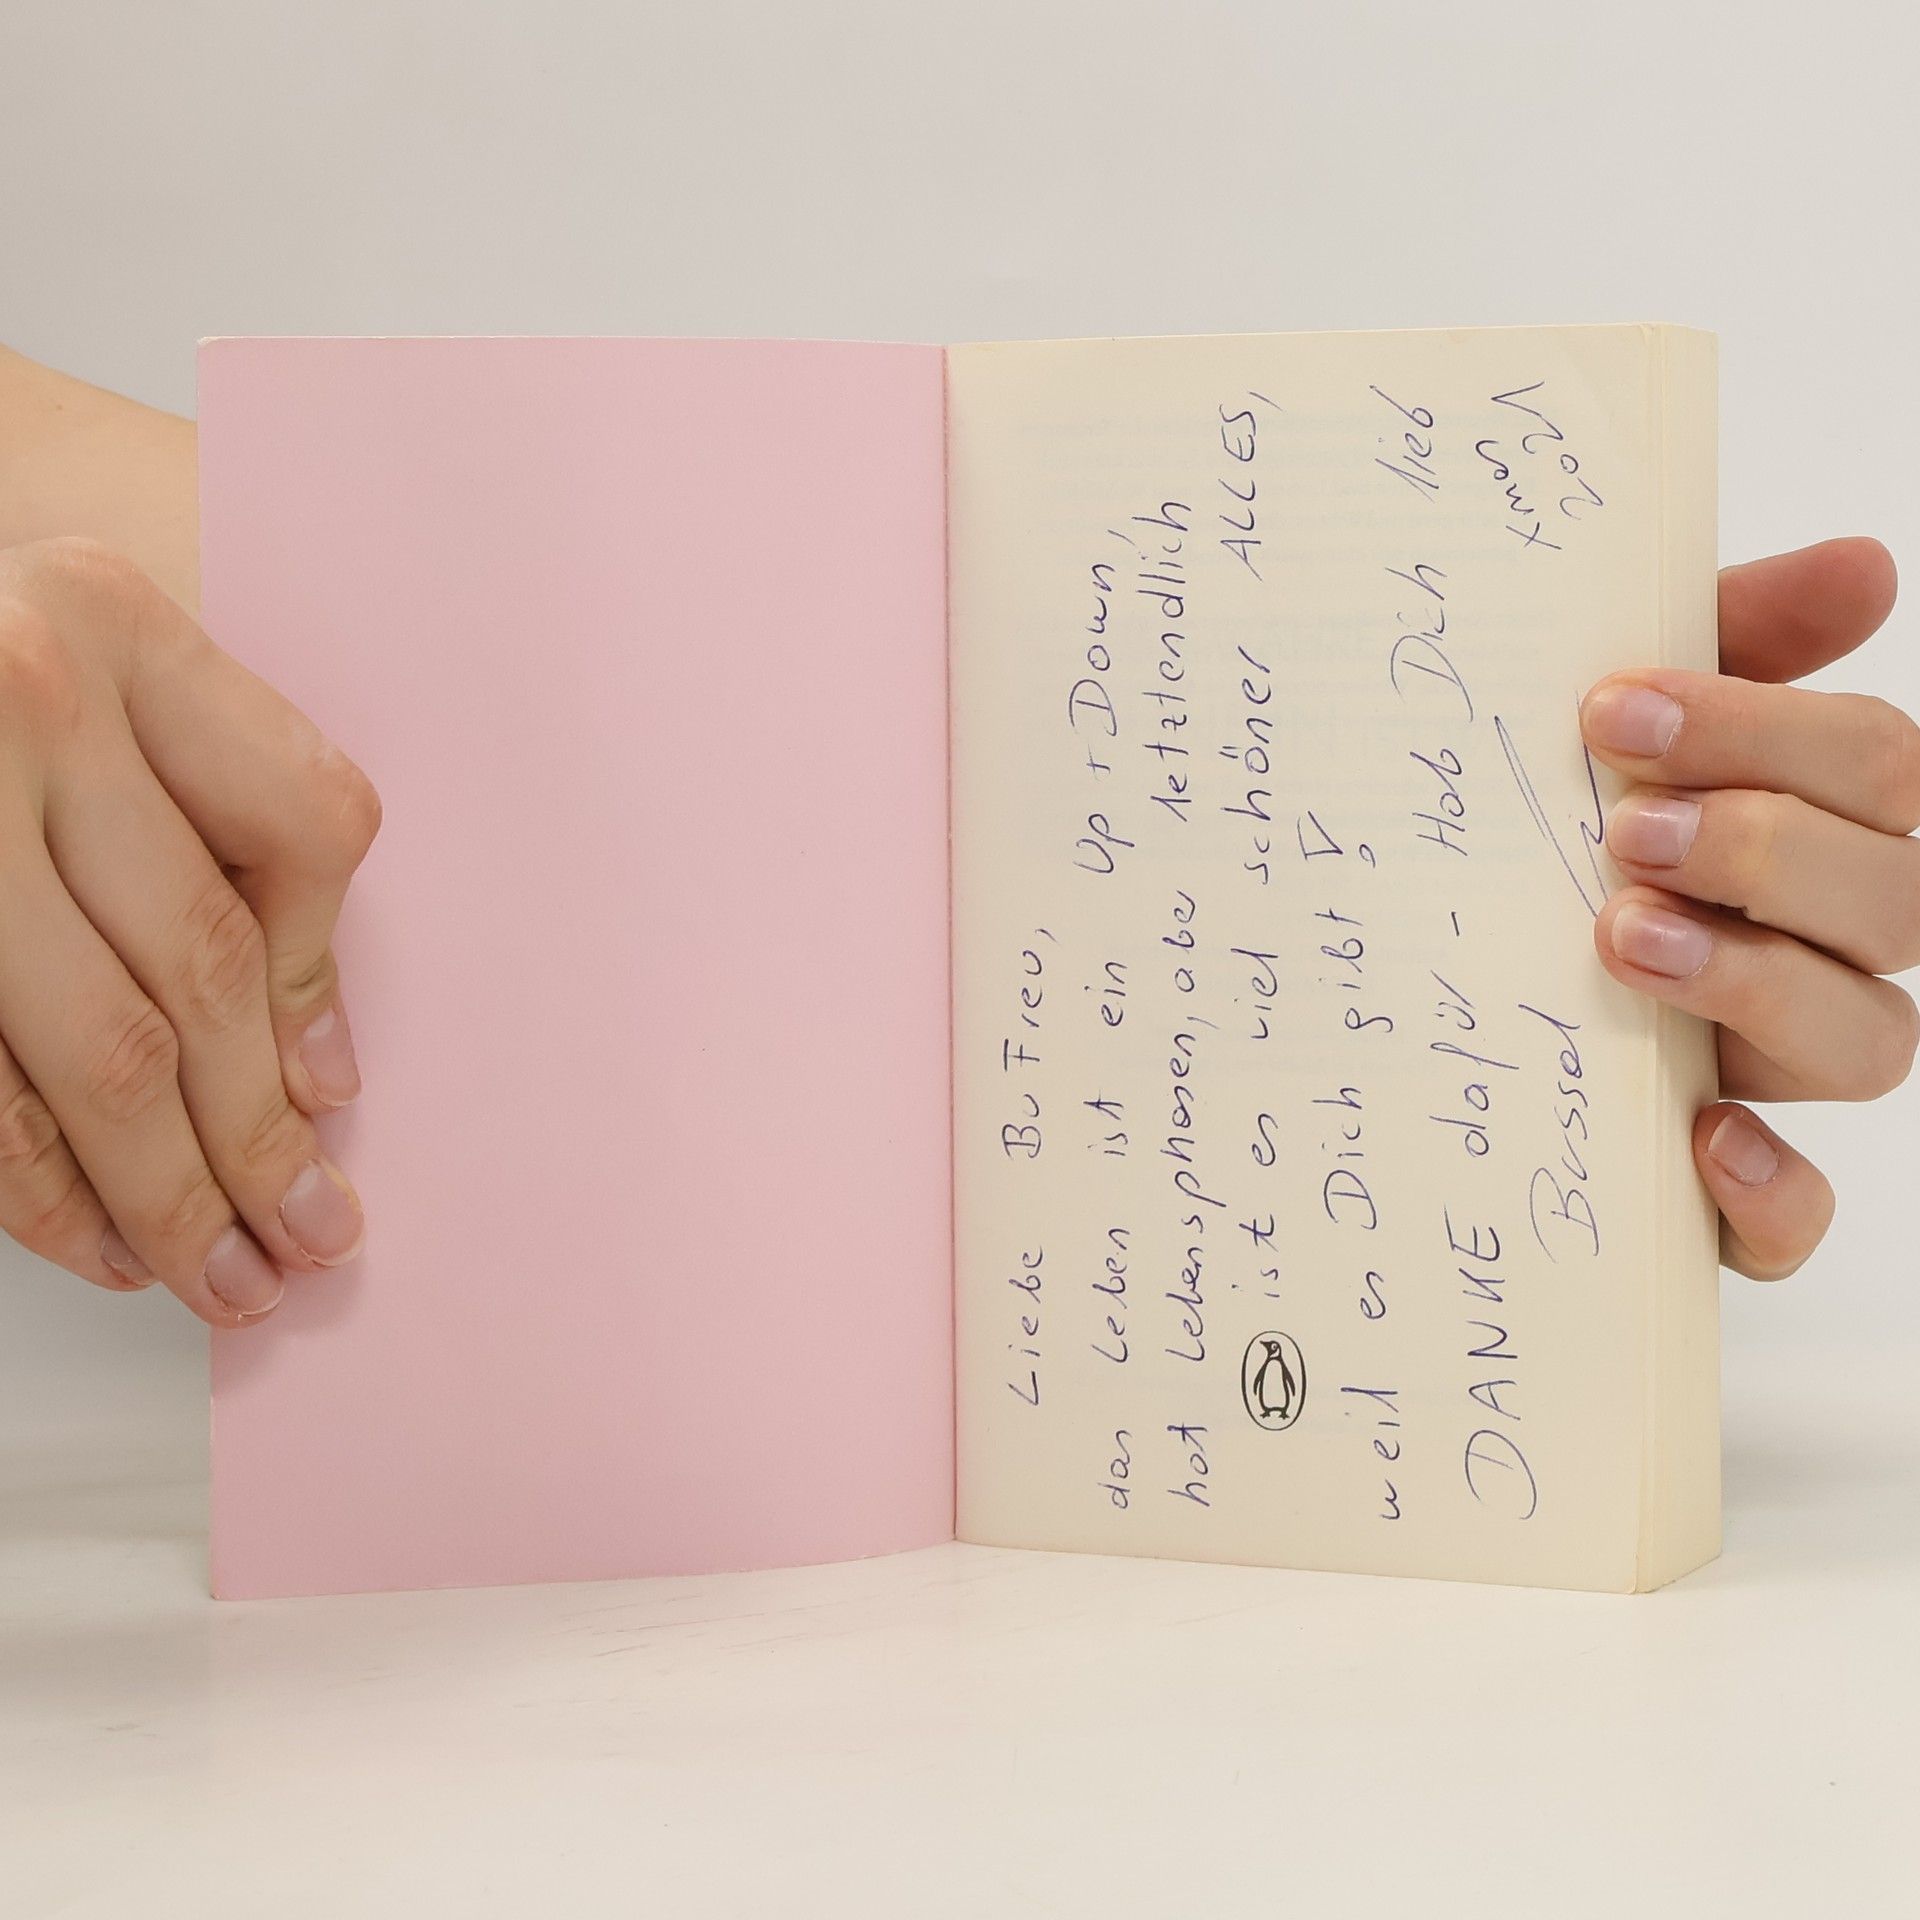 Liebe BuFreu,
das Leben ist ein Up + Down,
hat Lebensphasen, abe letztendlich
ist es viel schöner ALLES,
weil es Dich gibt!
DANKE dafür - Hab Dich lieb
Bussal
Xmas
2021